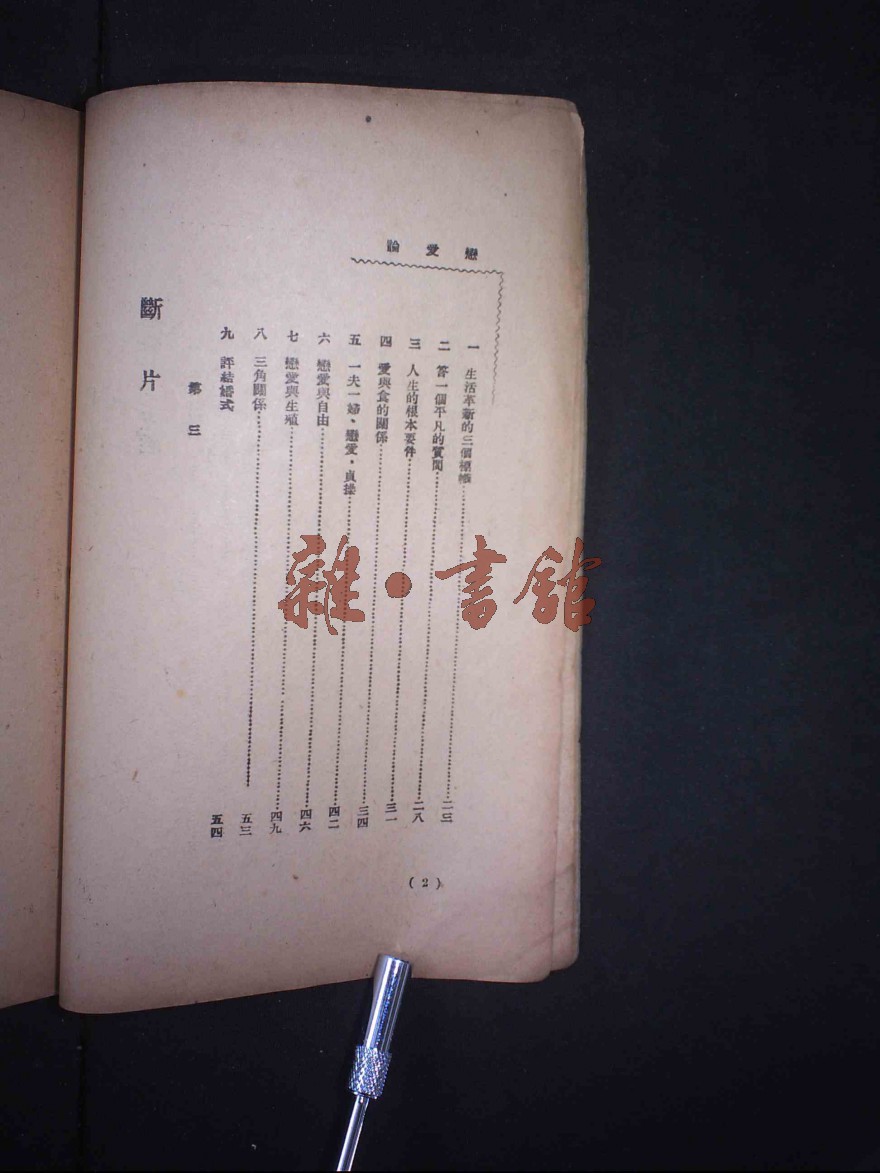 戀愛論
一 生活革新的三個標幟 二三
二 答一個平凡的質問 二八
三 人生的根本要件 三一
四 愛與食的關係 三四
五 一夫一婦、戀愛、貞操 四二
六 戀愛與自由 四六
七 戀愛與生殖 四九
八 三角關係 五三
九 評結婚式 五四
第三
斷片
(2)
雜·書館